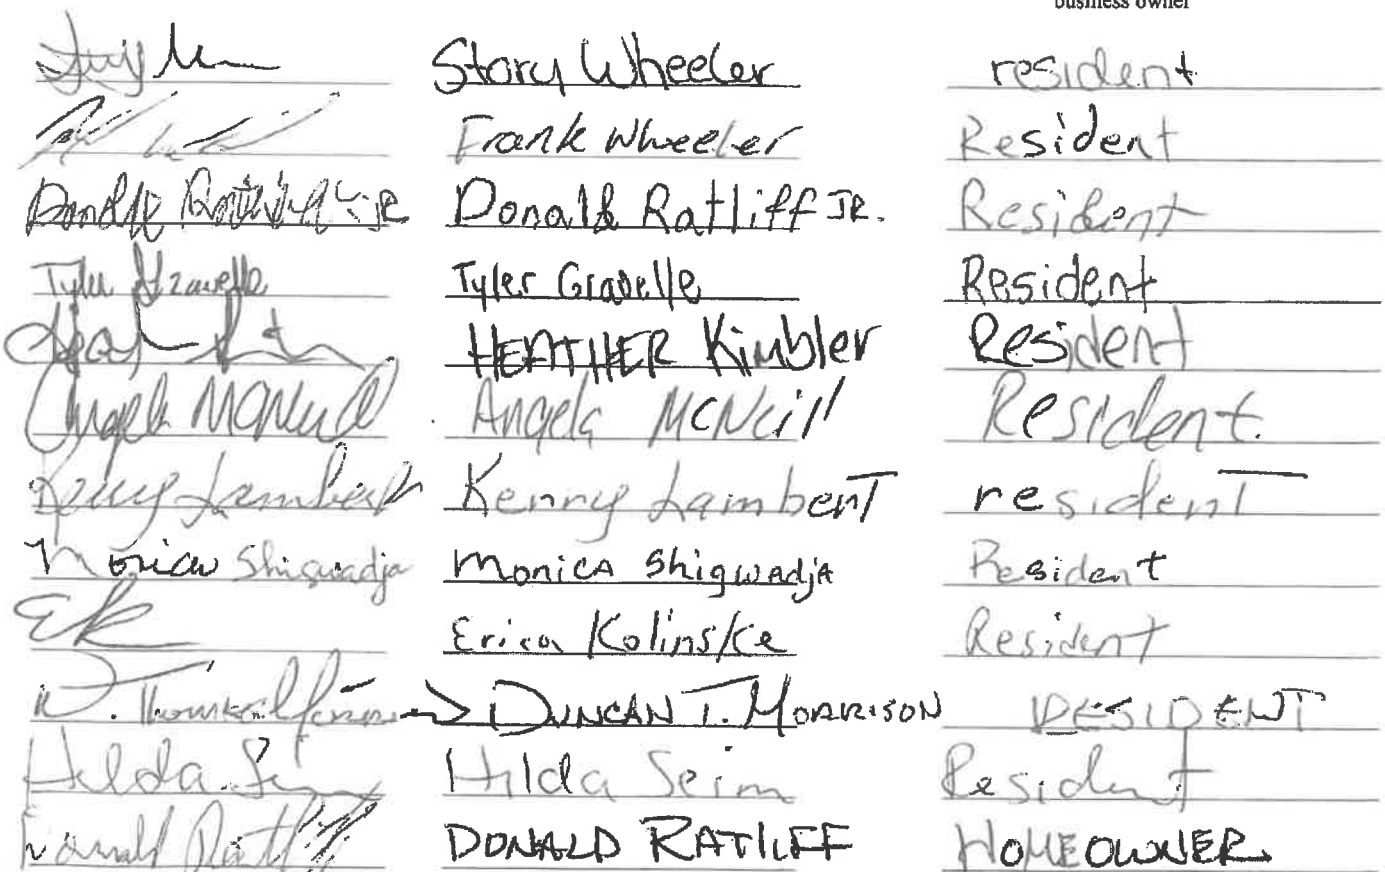 business owner
Story Wheeler resident
Frank Wheeler Resident
Donald Ratliff JR. Donald Ratliff JR. Resident
Tyler Gravelle Tyler Gravelle Resident
HEATHER Kimbler Resident
Angela McNeill Angela McNeill Resident.
Kenny Lambert Kenny Lambert resident
Monica Shigwadja Monica Shigwadja Resident
EK Erica Kolinske Resident
DUNCAN T. MORRISON RESIDENT
Hilda Seim Hilda Seim Resident
Donald Ratliff DONALD RATLIFF HOMEOWNER